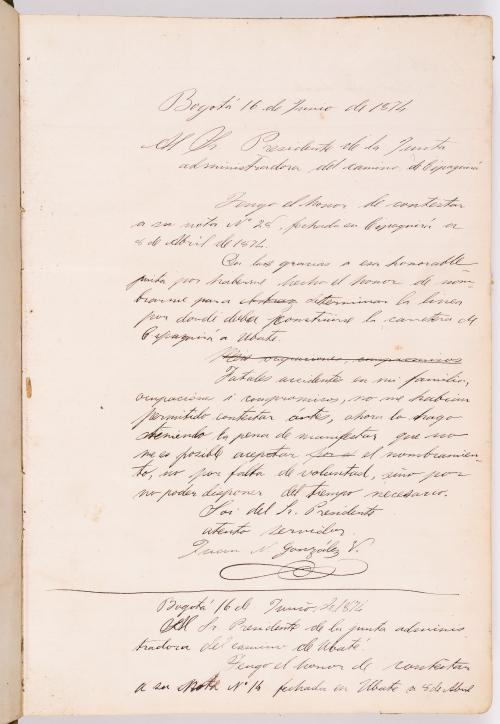 Bogotá 16 de Junio de 1874
Al Sr. Presidente de la Junta
administradora del camino de Cipaquirá
Tengo el honor de contestar
a su nota Nº 28, fechada en Cipaquirá en
8 de Abril de 1874.
Doi las gracias a esa honorable
junta por haberme hecho el honor de nom-
brarme para determinar la linea
por donde deba construirse la carretera de
Cipaquirá a Ubaté.
ocupaciones, compromisos
Fatales accidentes en mi familia,
ocupaciones i compromisos, no me habian
permitido contestar ántes, ahora lo hago
teniendo la pena de manifestar que no
me es posible aceptar el nombramien-
to, no por falta de voluntad, sino por
no poder disponer del tiempo necesario.
Soi del Sr. Presidente
atento servidor
Juan N. González V.
Bogotá 16 de Junio de 1874
Al Sr Presidente de la junta adminis
tradora del camino de Ubaté.
Tengo el honor de contestar
a su Nota Nº 14 fechada en Ubaté a 8 de Abril